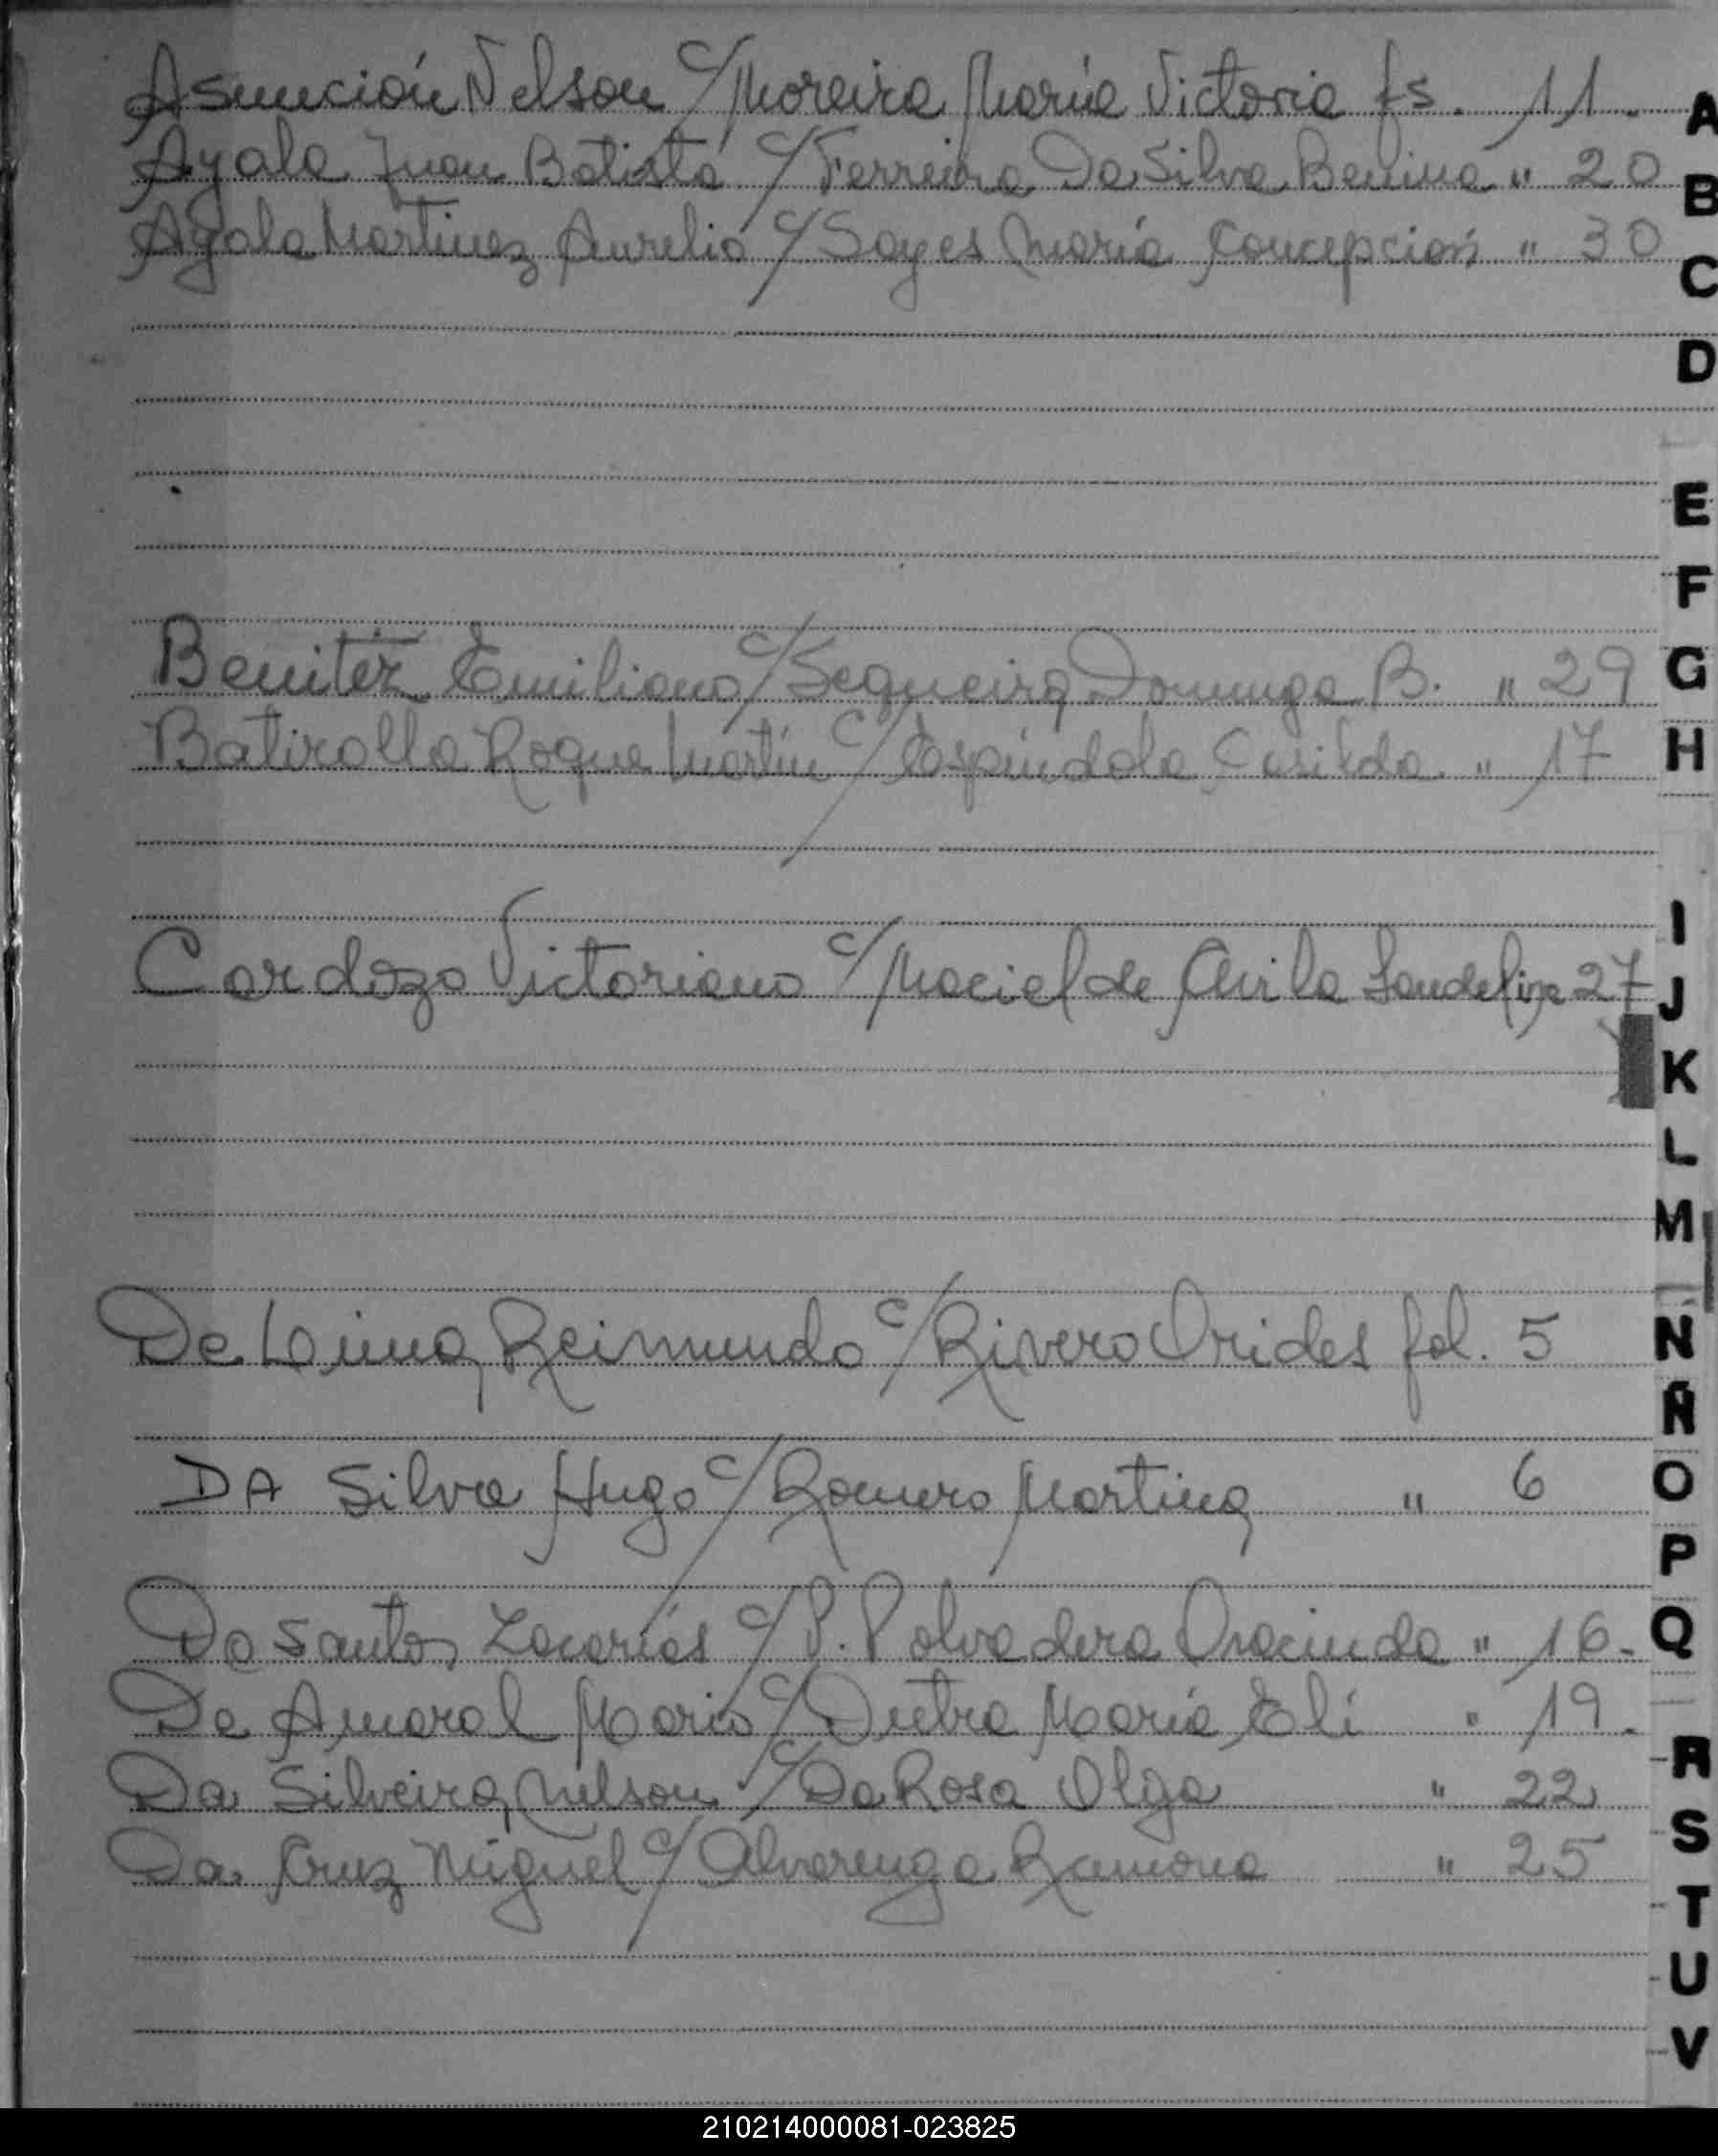 Asunción Nelson c/ Moreira María Victoria fs. 11.
Ayala Juan Batista c/ Ferreira Da Silva Benina " 20
Ayala Martinez Aurelio c/ Sayes María Concepción " 30
Benitez Emiliano c/ Sequeira Dominga B. " 29
Batirolla Roque Martín c/ Espíndola Casilda " 17
Cardozo Victoriano c/ Maciel de Avila Landelina 27
De Lima Reimundo c/ Rivero Orides fol. 5
DA Silva Hugo c/ Romero Martina " 6
Do Santos Zacarías c/ P. Polvadera Oracinda " 16-
De Amaral Mario c/ Dutra María Eli " 19.
Da Silveira Nelson c/ Da Rosa Olga " 22
Da Cruz Miguel c/ Alvarenga Ramona " 25
A
B
C
D
E
F
G
H
I
J
K
L
M
N
Ñ
O
P
Q
R
S
T
U
V
210214000081-023825